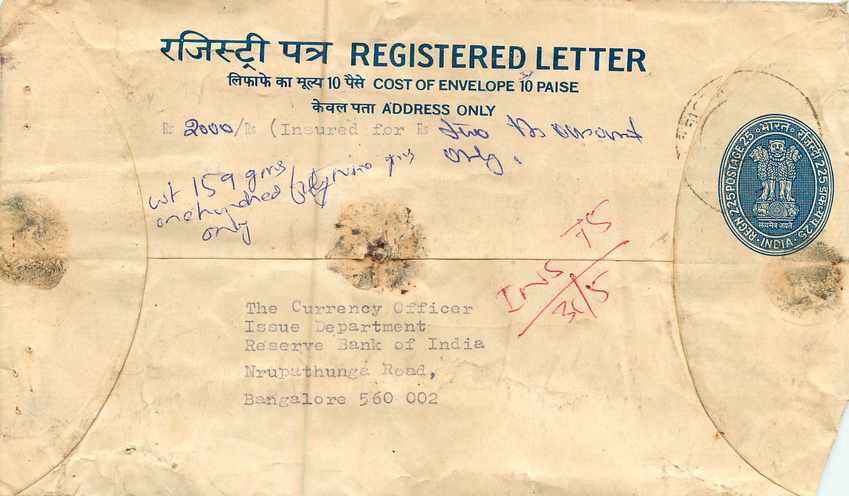 रजिस्ट्री पत्र REGISTERED LETTER
लिफाफे का मूल्य 10 पैसे COST OF ENVELOPE 10 PAISE
केवल पता ADDRESS ONLY
₨ 2000/₨ (Insured for ₨ two Thousand
only.
wt 159 gms
onehundred fiftynine gms
only
REGN 2.25 POSTAGE 25 भारत रजि. 2.25 डाक-व्यय 25
सत्यमेव जयते
INDIA
INS 75
31/5
The Currency Officer
Issue Department
Reserve Bank of India
Nrupathunga Road,
Bangalore 560 002